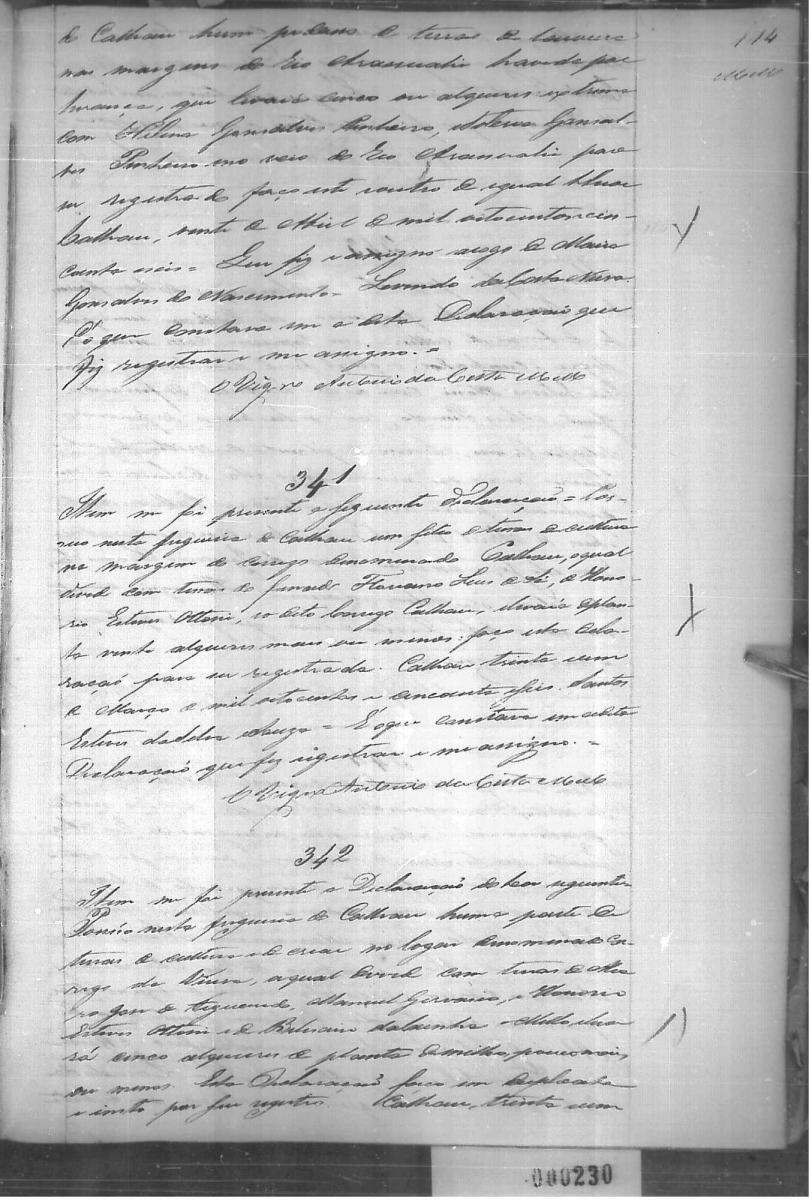 114
Mello
de Calhau hum pedaço de terras de lavoura
nas margens do Rio Arassuahi havida por
herança, que levará cinco ou alqueires extrema
com Gonsalves Pinheiro, Gonsal-
ves Pinheiro no veio do Rio Arassuahi para
ser registrado faço este e outro de igual theor
Calhau, vente de Abril de mil oitocentos cin-
coenta eseis = Que fiz e assigno arogo de Maria
Gonsalves do Nascimento - da Costa
É o que constava em a dita Declaração que
fiz registrar e me assigno. =
O Vigro Antonio da Costa Mello
341
Item me foi presente a seguinte Declaração = Pos-
suo nesta freguesia do Calhau um sitio de terras de cultura
na margem do corrego denominado Calhau, o qual
divide com terras do finado Floriano de Sá, de Hono-
rio Esteves Ottoni, e o dito Corrego Calhau, e levará de plan-
ta vente alqueires mais ou menos: faço esta decla-
ração para ser registrada. Calhau trinta e um
de Março de mil oitocentos e cincoenta e seis. Santos
Esteves da Silva e Souza = É o que constava em a dita
Declaração que fiz registrar e me assigno. =
O Vigro Antonio da Costa Mello
342
Item me foi presente a Declaração do theor seguinte
Possúo nesta freguesia do Calhau huma parte de
terras de cultura e de criar no logar denominado Cor-
rego da a qual divide com terras de
José de Figueiredo, Manuel Gervasio, e Honorio
Esteves Ottoni e de da Cunha e Mello, e leva-
rá cinco alqueires de planta de milho, pouco mais
ou menos. Esta Declaração faço em duplicata
e insto por seu registro. Calhau, trinta e um
000230